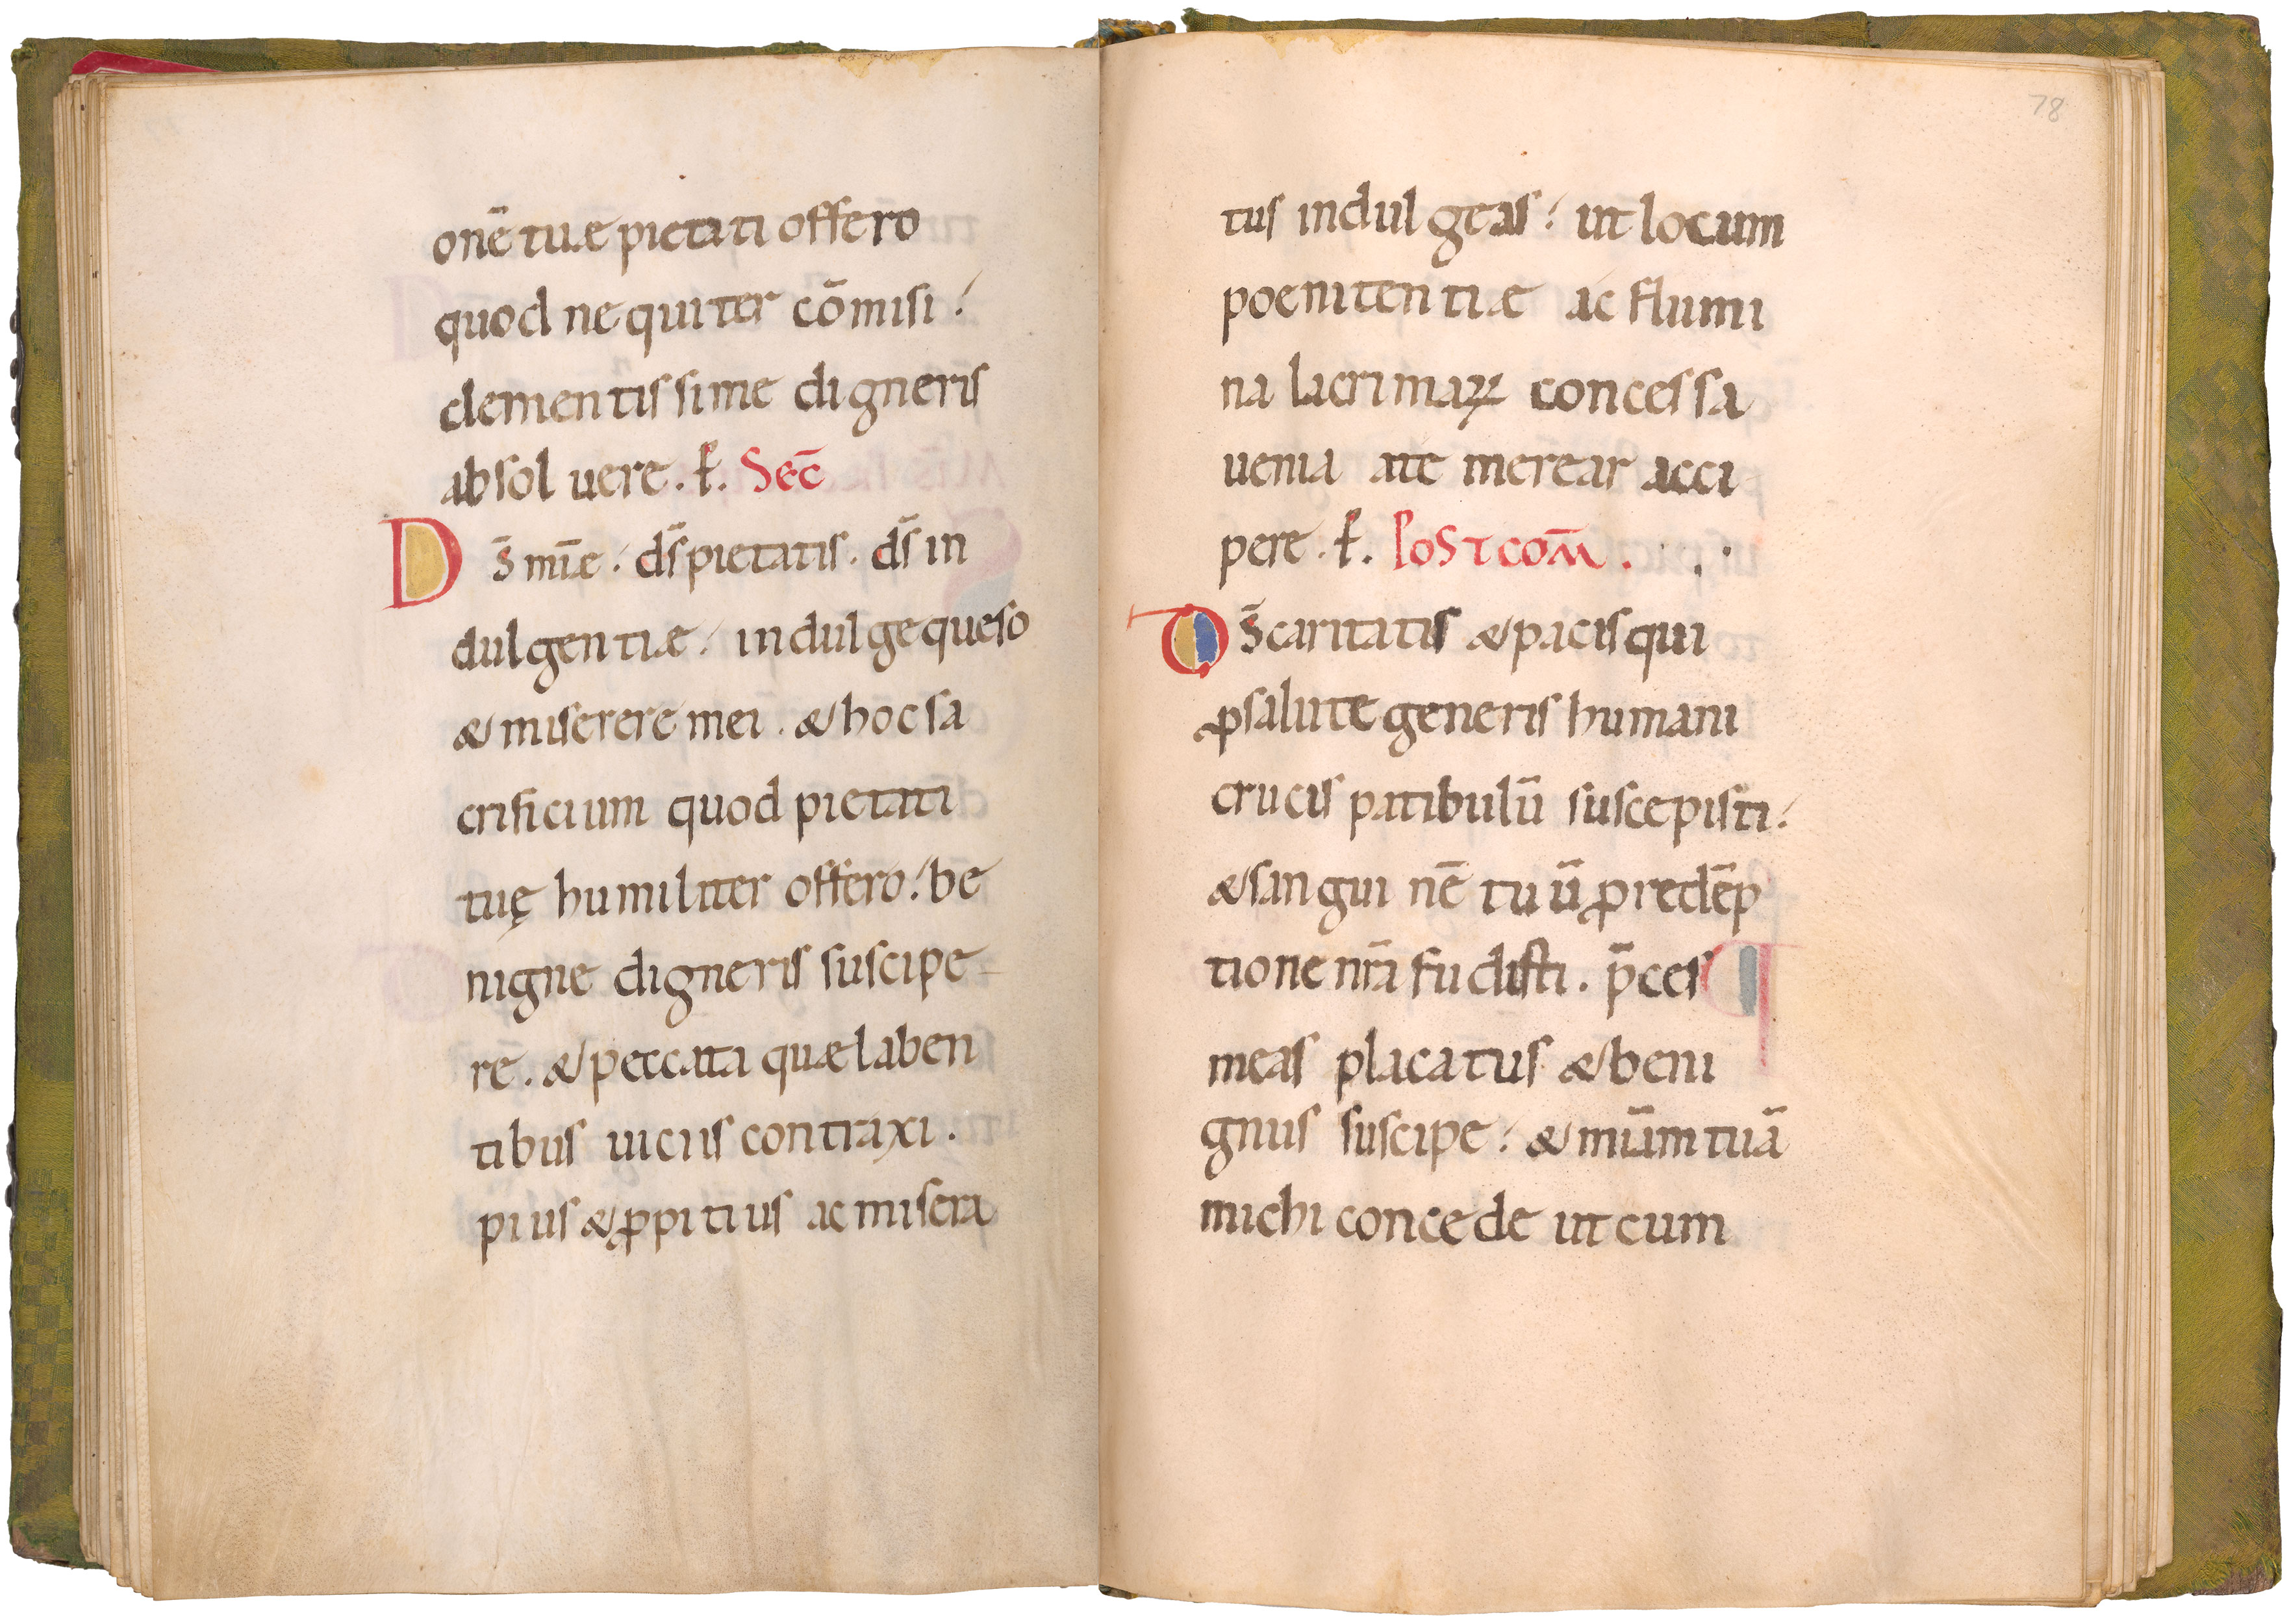 onē tuæ pietati offero
quod nequiter cōmisi
clementissime digneris
absoluere. ł. Sec̄
Ds̄ mīæ. ds̄ pietatis. ds̄ in
dulgentiæ. indulge queso
& miserere mei. & hoc sa
crificium quod pietati
tuę humiliter offero. be
nigne digneris suscipe
re. & peccata quæ laben
tibus uiciis contraxi.
pius & ꝓpitius ac misera
78
tus indulgeas. ut locum
poenitentiæ ac flumi
na lacrimaꝝ concessa
uenia a te merear acci
pere. ł. Postcom̄.
Ds̄ caritatis & pacis qui
ꝓ salute generis humani
crucis patibulū suscepisti.
& sanguinē tuū ꝓ redēp
tione nr̄a fudisti. p̄ces
meas placatus & beni
gnus suscipe. & mīam tuā
michi concede ut cum